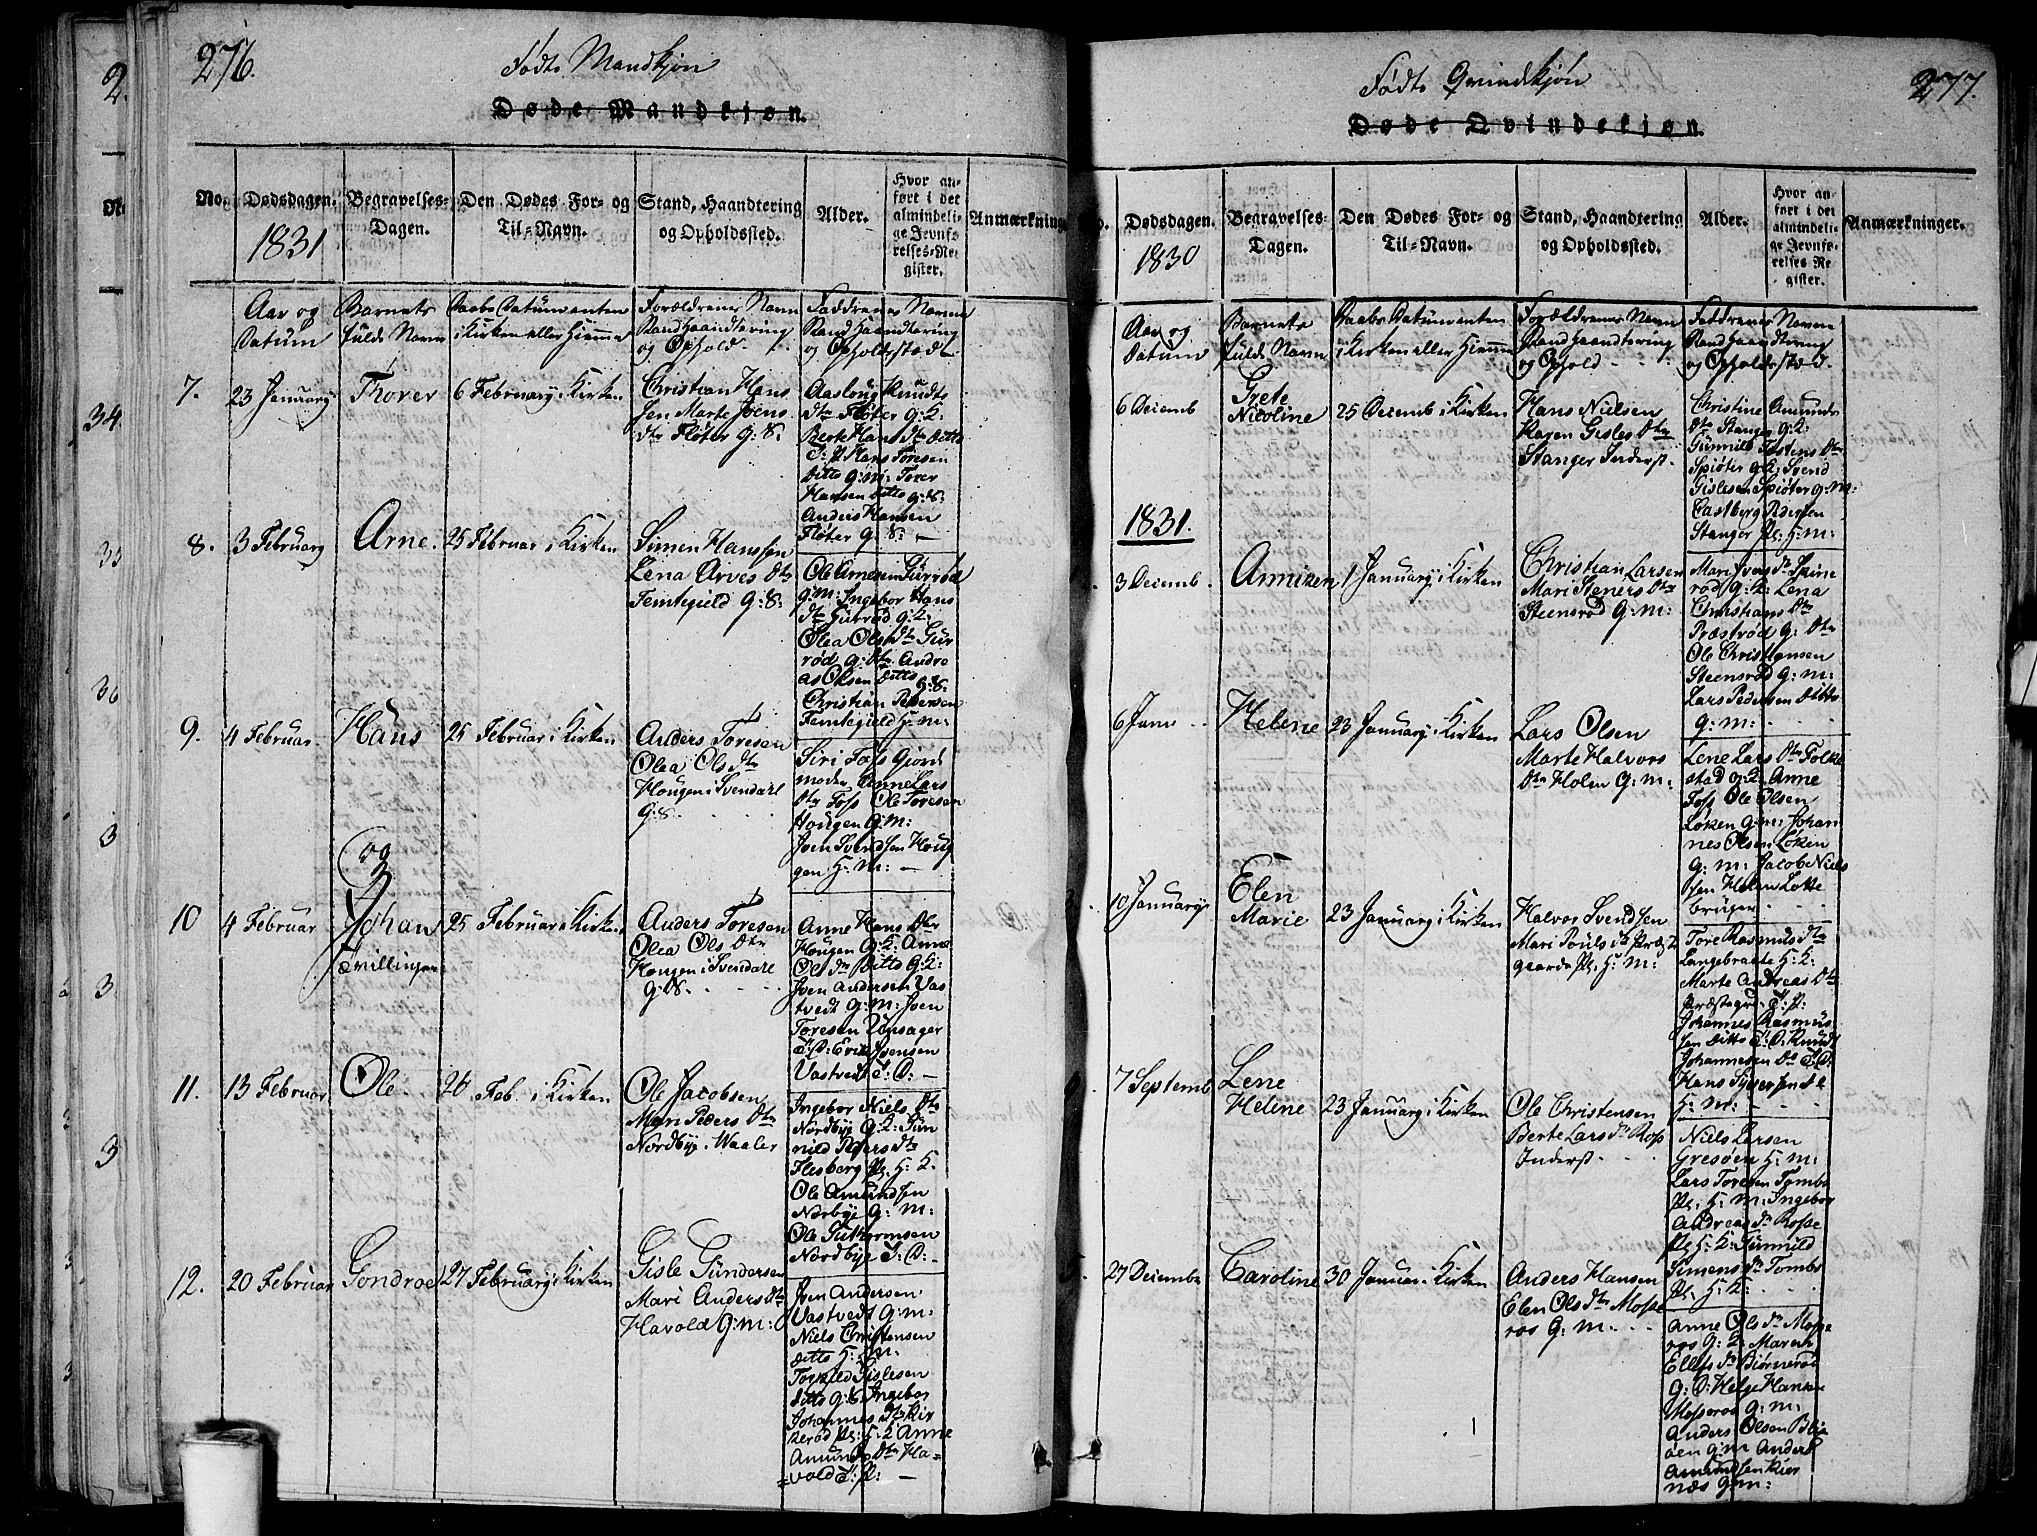 276.
Fødte Mandkjøn
Døde Mandkjøn.
No.
Dødsdagen.
1831
Begravelses-
Dagen.
Den Dødes For- og
Til-Navn.
Stand, Haandtering
og Opholdssted.
Alder.
Hvor an-
ført i det
almindeli-
ge Jevnfø-
relses-Re-
gister.
Anmærkninge
Aar og
Datum
Barnets
fulde Navn
Daabs Datum enten
i Kirken eller Hiemme
Forældrenes Navn
Stand Haandtering
og Ophold
Faddrenes Navne
Stand Haandtering
og Opholdsstæd
7.
23 January
Thorer
6 February i Kirken
Christian Hans
sen Marte Joens
dtr Fløter G: S:
Aaslaug Knudts
dtr Fløter G: K:
Berte Hans dtr Ditto
T: P: Hans Toresen
Ditto G: M: Torer
Hansen Ditto G: S:
Anders Hansen
Fløter G: S: —
8.
3 February
Arne.
25 Februar i Kirken
Simen Hanssen
Lena Arves dtr
Femtegield G: S:
Ole Arnesen Gurrød
G: M: Ingebor Hans
dtr Gurrød G: K:
Olea Ols dtr Gur
rød G: dtr Andre
as Olsen Ditto G: S:
Christian Pedersen
Femtegield H: M:
9.
4 Februar
Hans
25 Februar i Kirken
Anders Toresen
Olea Ols dtr
Hougen i Svendahl
G: S:
Siri Foss Gjord
moder Anne Lars
dtr Foss Ole Toresen
Hougen G: M:
Joen Svendsen Houg
gen H: M: —
og
10
4 Februar
Johan
tvillinger
25 Februar i Kirken
Anders Toresen
Olea Ols dtr
Hougen i Svendahl
G: S:
Anne Hans dtr
Hougen G: K: Anne
Ols dtr Ditto G: K:
Joen Andersen Vas
tvedt G: M: Joen
Toresen Unsager
T: D: Erik Joensen
Vastvedt T: D: —
11.
13 Februar
Ole
26 Feb. i Kirken
Ole Jacobsen
Mari Peders dtr
Nordbye i Waaler
Ingebor Niels dtr
Nordbye G: K: Gun
nild Peders dtr
Flesberg Pl: H: K.
Ole Amundsen
Norbye G: M:
Ole Guttormsen
Nordbye T: D: —
12.
20 Februar
Gondroe
27 February i Kirken
Gisle Gundersen
Mari Anders dtr
Havold G: M:
Joen Andersen
Vastvedt G: M:
Niels Christensen
Ditto H: M:
Torkild Gislesen
ditto G: S: Ingebor
Johannes dtr Kir
kerød Pl: H: K: Anne
Amunds dtr Ha=
=vold T: P: —
277.
Fødte Qvindkjøn
Døde Qvindekjøn.
Dødsdagen.
1830
Begravelses-
Dagen.
Den Dødes For- og
Til-Navn.
Stand, Haandtering
og Opholdssted.
Alder.
Hvor an-
ført i det
almindeli-
ge Jevnfø-
relses Re-
gister.
Anmærkninger.
Aar og
Datum
Barnets
fulde Navn
Daabs Datum enten
i Kirken eller Hiemme
Forældrenes Navn
Stand Haandtering
og Ophold
Faddrenes Navne
Stand Haandtering
og Opholdsstæd.
6 Decemb
Grete
Nicoline
25 Decemb i Kirken
Hans Nielsen
Karen Gisles dtr
Stanger Inderst.
Christine Amunds
dtr Stanger G: K:
Gunnild Tostens dtr
Spiøter G: K: Svend
Gislesen Spiøter G: M:
Castberg Pedersen
Stanger Pl: H: M:
1831.
3 Decemb.
Anniken
1 January i Kirken
Christian Larsen
Mari Steners dtr
Steensrød G: M:
Mari Joens dtr
rød G: K: Lena
Christians dtr
Præstrød G: dtr
Ole Christiansen
Steensrød G: M:
Lars Pedersen Ditto
G: M:
6 Janv
Helene
23 January i Kirken
Lars Olsen
Marte Halvors
dtr Holen G: M:
Lene Lars dtr Folke
stad G: K: Anne
Foss Ole Olsen
Løken G: M: Johan
nes Olsen Løken
G: M: Jacob Niels
sen Holen Løke
bruger
10 January
Elen
Marie
23 January i Kirken
Halvor Svendsen
Mari Pouls dtr Præst
gaarden Pl: H: M:
Tore Rasmus dtr
Langebraate H: K:
Marte Andreas dtr
Præstegrd. T: P:
Johannes Rasmus
sen Ditto T: D: Knudt
Johannesen Do T: D:
Hans
H: M:
7 Septemb
Lene
Helene
23 January i Kirken
Ole Christensen
Berte Lars dtr Ross
Inderst
Niels Larsen
Gresøen H: M:
Lars Toresen Tombs
Pl: H: M: Ingebor
Andreas dtr Rosse
Pl: H: K: Gunnild
Simens dtr Tombs
Pl: H: K:
27 Decembr
Caroline
30 Januar i Kirken
Anders Hansen
Elen Ols dtr Mosse
ros G: M:
Anne Ols dtr Mosse
ros G: K: Maren
Ellefs dtr Biørnerød
G: D: Helge Hansen
Mosseros G: M:
Anders Olsen
G: M Anders
Amundsen Kier
næs G: M: